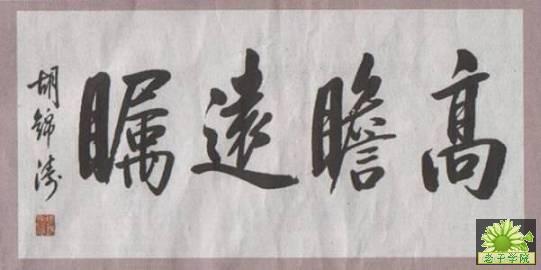 高瞻遠瞩
胡錦濤
老子学院